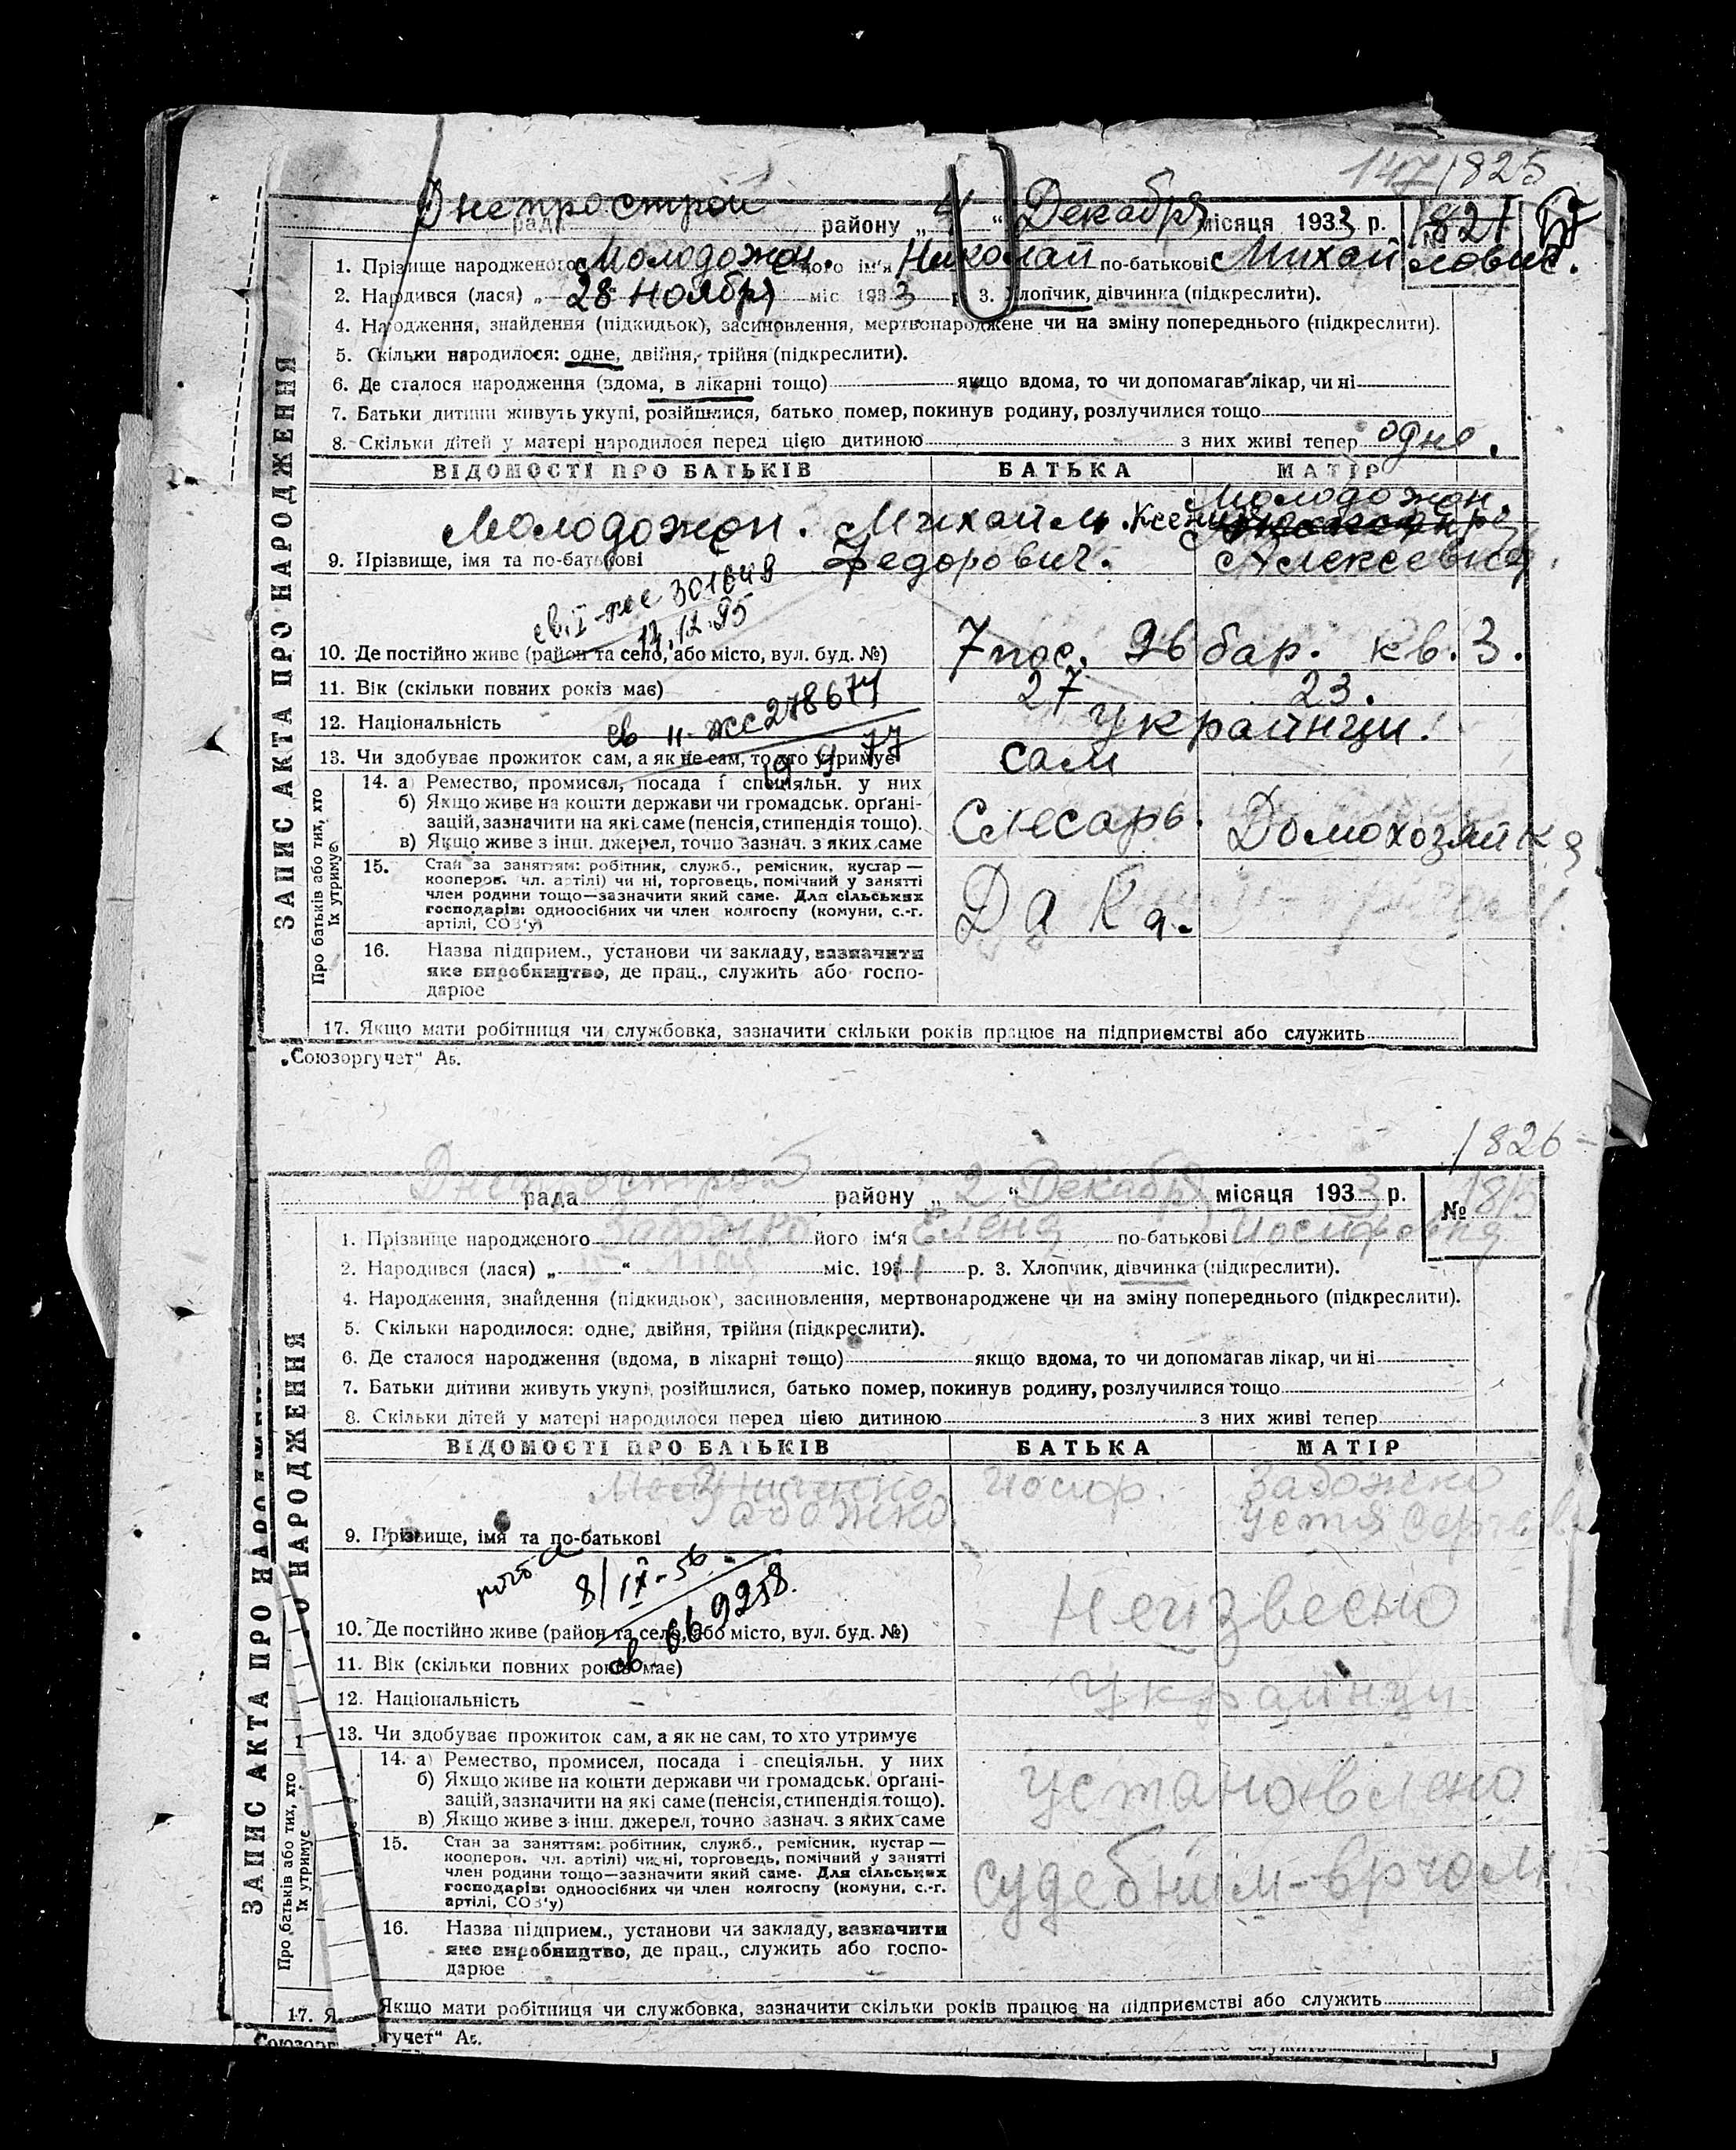 147 1825
Днепрострой
рада району „4“ Декабря місяця 1933 р. № 1821
1. Прізвище народженого Молодожон. його ім'я Николай по-батькові Михайлович.
2. Народився (лася) „28 ноября міс 1933 р. 3. Хлопчик, дівчинка (підкреслити).
4. Народження, знайдення (підкидьок), засиновлення, мертвонароджене чи на зміну попереднього (підкреслити).
5. Скільки народилося: одне, двійня, трійня (підкреслити).
6. Де сталося народження (вдома, в лікарні тощо) якщо вдома, то чи допомагав лікар, чи ні
7. Батьки дитини живуть укупі, розійшлися, батько помер, покинув родину, розлучилися тощо
8. Скільки дітей у матері народилося перед цією дитиною з них живі тепер одно.
ЗАПИС АКТА ПРО НАРОДЖЕННЯ
ВІДОМОСТІ ПРО БАТЬКІВ БАТЬКА МАТІР
Молодожон.
Молодожон. Михаил Ксения
9. Прізвище, імя та по-батькові Федорович. Алексеевна.
301648
10. Де постійно живе (район та село, або місто, вул. буд. №) 7 пос. 26 бар. кв. 3.
11. Вік (скільки повних років має) 27 23.
12. Національність украинци.
св II-жс 278674
13. Чи здобуває прожиток сам, а як не сам, то хто утримує сам
Про батьків або тих, хто їх утримує
14. а) Ремество, промисел, посада і спеціяльн. у них
б) Якщо живе на кошти держави чи громадськ. орґані-
зацій, зазначити на які саме (пенсія, стипендія тощо).
в) Якщо живе з інш. джерел, точно зазнач. з яких саме
Слесарь. Домохозяйка
15. Стан за заняттям: робітник, служб., ремісник, кустар —
кооперов. чл. артілі) чи ні, торговець, помічний у занятті
член родини тощо—зазначити який саме. Для сільських
господарів: одноосібних чи член колгоспу (комуни, с.-г.
артілі, СОЗ'у)
Дака.
16. Назва підприєм., установи чи закладу, зазначити
яке виробництво, де прац., служить або госпо-
дарює
17. Якщо мати робітниця чи службовка, зазначити скільки років працює на підприємстві або служить
„Союзоргучет“ Аб.
1826
Днепрострой
рада району „2“ Декабря місяця 1933 р. № 1815
1. Прізвище народженого Забожко його ім'я Елена по-батькові Иосиповна
2. Народився (лася) „ “ мая міс. 1911 р. 3. Хлопчик, дівчинка (підкреслити).
4. Народження, знайдення (підкидьок), засиновлення, мертвонароджене чи на зміну попереднього (підкреслити).
5. Скільки народилося: одне, двійня, трійня (підкреслити).
6. Де сталося народження (вдома, в лікарні тощо) якщо вдома, то чи допомагав лікар, чи ні
7. Батьки дитини живуть укупі, розійшлися, батько помер, покинув родину, розлучилися тощо
8. Скільки дітей у матері народилося перед цією дитиною з них живі тепер
ЗАПИС АКТА ПРО НАРОДЖЕННЯ
ВІДОМОСТІ ПРО БАТЬКІВ БАТЬКА МАТІР
Иосиф. Забожко
Забожко Устя
9. Прізвище, імя та по-батькові
8/IX-56
св. 669258.
Неизвесно
10. Де постійно живе (район та село, або місто, вул. буд. №)
11. Вік (скільки повних років має)
12. Національність украинци
13. Чи здобуває прожиток сам, а як не сам, то хто утримує
Про батьків або тих, хто їх утримує
14. а) Ремество, промисел, посада і спеціяльн. у них
б) Якщо живе на кошти держави чи громадськ. орґані-
зацій, зазначити на які саме (пенсія, стипендія тощо).
в) Якщо живе з інш. джерел, точно зазнач. з яких саме
установлено
15. Стан за заняттям: робітник, служб., ремісник, кустар —
кооперов. чл. артілі) чи ні, торговець, помічний у занятті
член родини тощо—зазначити який саме. Для сільських
господарів: одноосібних чи член колгоспу (комуни, с.-г.
артілі, СОЗ'у)
судебним-врчом.
16. Назва підприєм., установи чи закладу, зазначити
яке виробництво, де прац., служить або госпо-
дарює
17. Якщо мати робітниця чи службовка, зазначити скільки років працює на підприємстві або служить
гучет“ Аб.